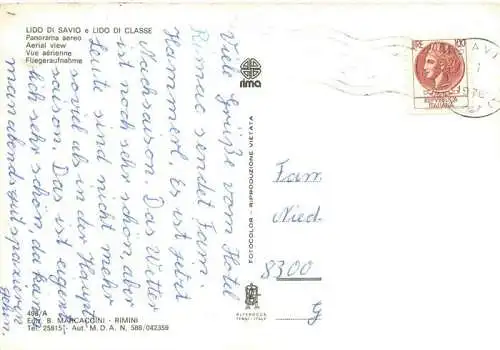 LIDO DI SAVIO e LIDO DI CLASSE
Panorama aereo
Aerial view
Vue aérienne
Fliegeraufnahme
rima
Viele Grüße vom Hotel
Rimac sendet Fam.
Hammerl. Es ist jetzt
Nachsaison. Das Wetter
ist noch sehr schön, aber
Leute sind nicht mehr
soviel als in der Haupt
saison. Das ist eigent
lich sehr schön, da kann
man abends gut spazieren
gehn.
FOTOCOLOR - RIPRODUZIONE VIETATA
LIRE 100
REPVBBLICA
ITALIANA
Fam
Nied
8300
G
498/A
Ediz. B. MARCACCINI - RIMINI
Tel. 25815 - Aut. M. D. A. N. 588/042359